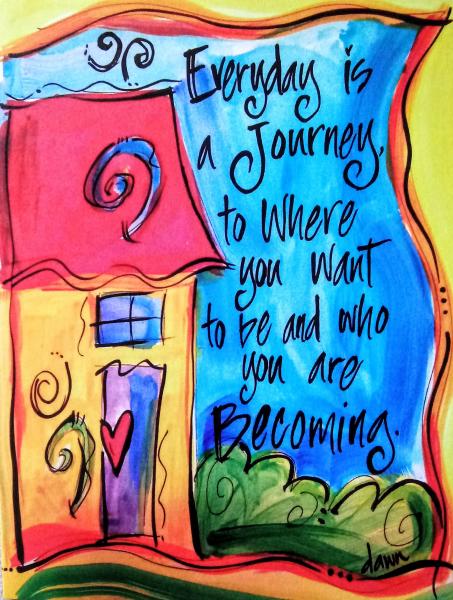 Everyday is
a Journey,
to Where
you want
to be and who
you are
Becoming.
dawn